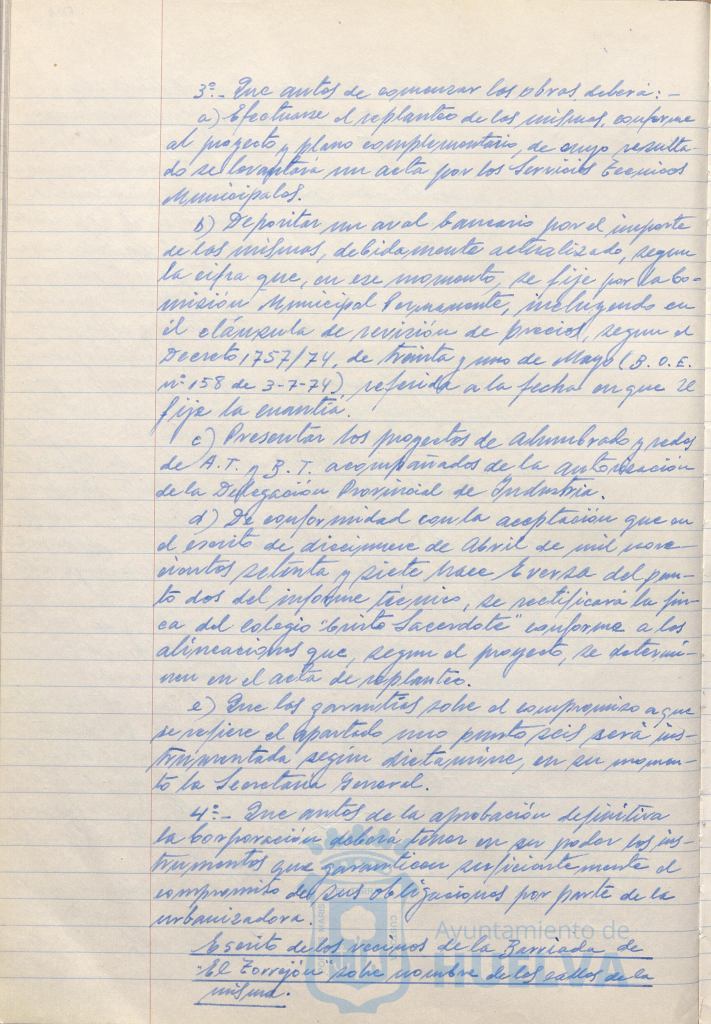 3º.- Que antes de comenzar las obras, deberá: -
a) Efectuarse el replanteo de las mismas, conforme
al proyecto y plano complementario, de cuyo resulta-
do se levantará un acta por los Servicios Tecnicos
Municipales.
b) Depositar un aval bancario por el importe
de las mismas, debidamente actualizado, segun
la cifra que, en ese momento, se fije por la Co-
misión Municipal Permanente, incluyendo en
él cláusula de revisión de precios, segun el
Decreto 1757/74, de treinta y uno de Mayo (B.O.E.
nº 158 de 3-7-74) referida a la fecha en que se
fije la cuantía.
c) Presentar los proyectos de Alumbrado y redes
de A.T. y B.T. acompañados de la autorización
de la Delegación Provincial de Industria.
d) De conformidad con la aceptación que en
el escrito de diecinueve de Abril de mil nove-
cientos setenta y siete hace Eversa del pun-
to dos del informe técnico, se rectificará la fin-
ca del colegio "Cristo Sacerdote" conforme a las
alineaciones que, segun el proyecto, se determi-
nen en el acta de replanteo.
e) Que las garantías sobre el compromiso a que
se refiere el apartado uno punto seis será ins-
trumentada según dictamine, en su momen-
to la Secretaria General.
4º.- Que antes de la aprobación definitiva
la Corporación deberá tener en su poder los ins-
trumentos que garanticen suficientemente el
compromiso de sus obligaciones por parte de la
urbanizadora.
Escrito de los vecinos de la Barriada de
"El Torrejón" sobre nombre de las calles de la
misma.
Ayuntamiento de
HUELVA